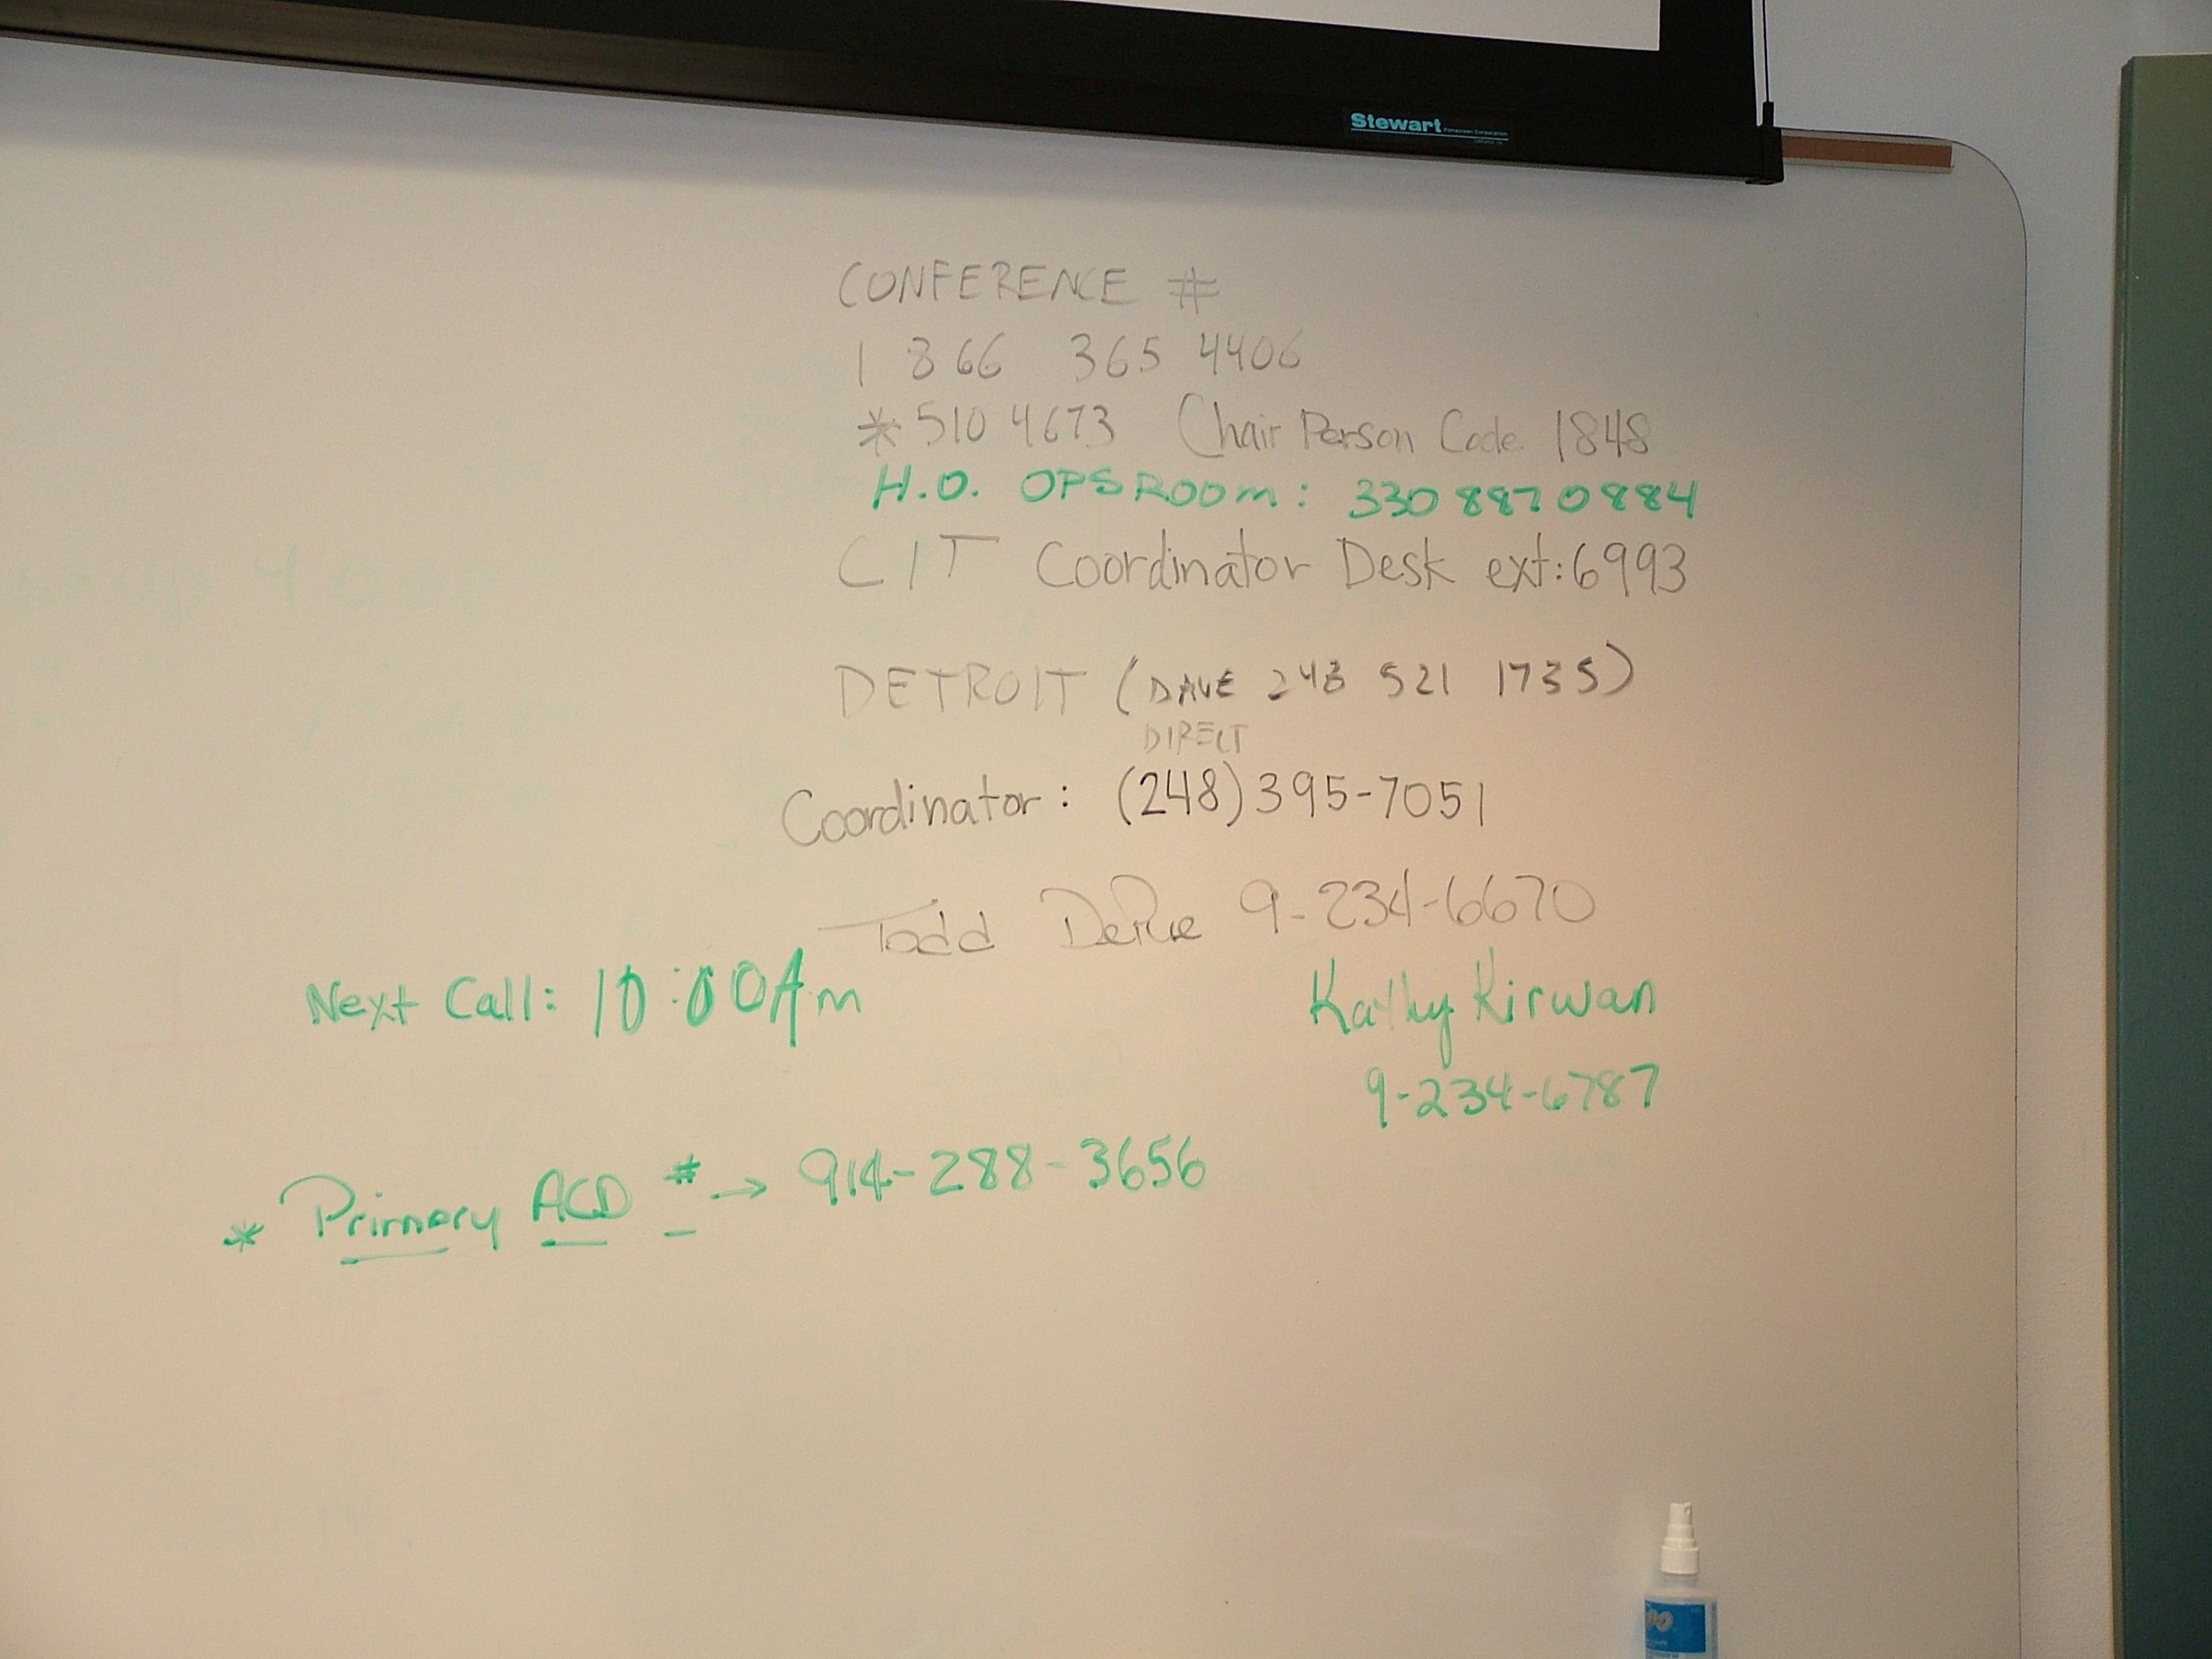 Stewart
CONFERENCE #
1 866 365 4406
*510 4673 Chair Person Code 1848
H.O. OPSROOM: 330 887 0884
CIT Coordinator Desk ext:6993
DETROIT (DAVE 248 521 1735)
DIRECT
Coordinator: (248)395-7051
Todd DePue 9-234-6670
Next Call: 10:00Am
Kathy Kirwan
9-234-6787
* Primary ACD # → 914-288-3656